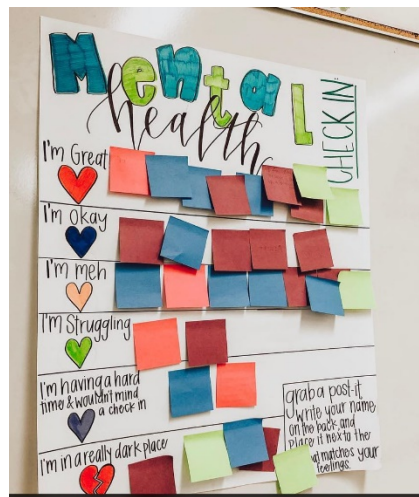 Mental
health
CHECK IN:
I'm Great
I'm okay
I'm meh
I'm Struggling
I'm having a hard
time & wouldn't mind
a check in
I'm in a really dark place
grab a post-it
write your name
on the back, and
place it next to the
matches your
feelings.